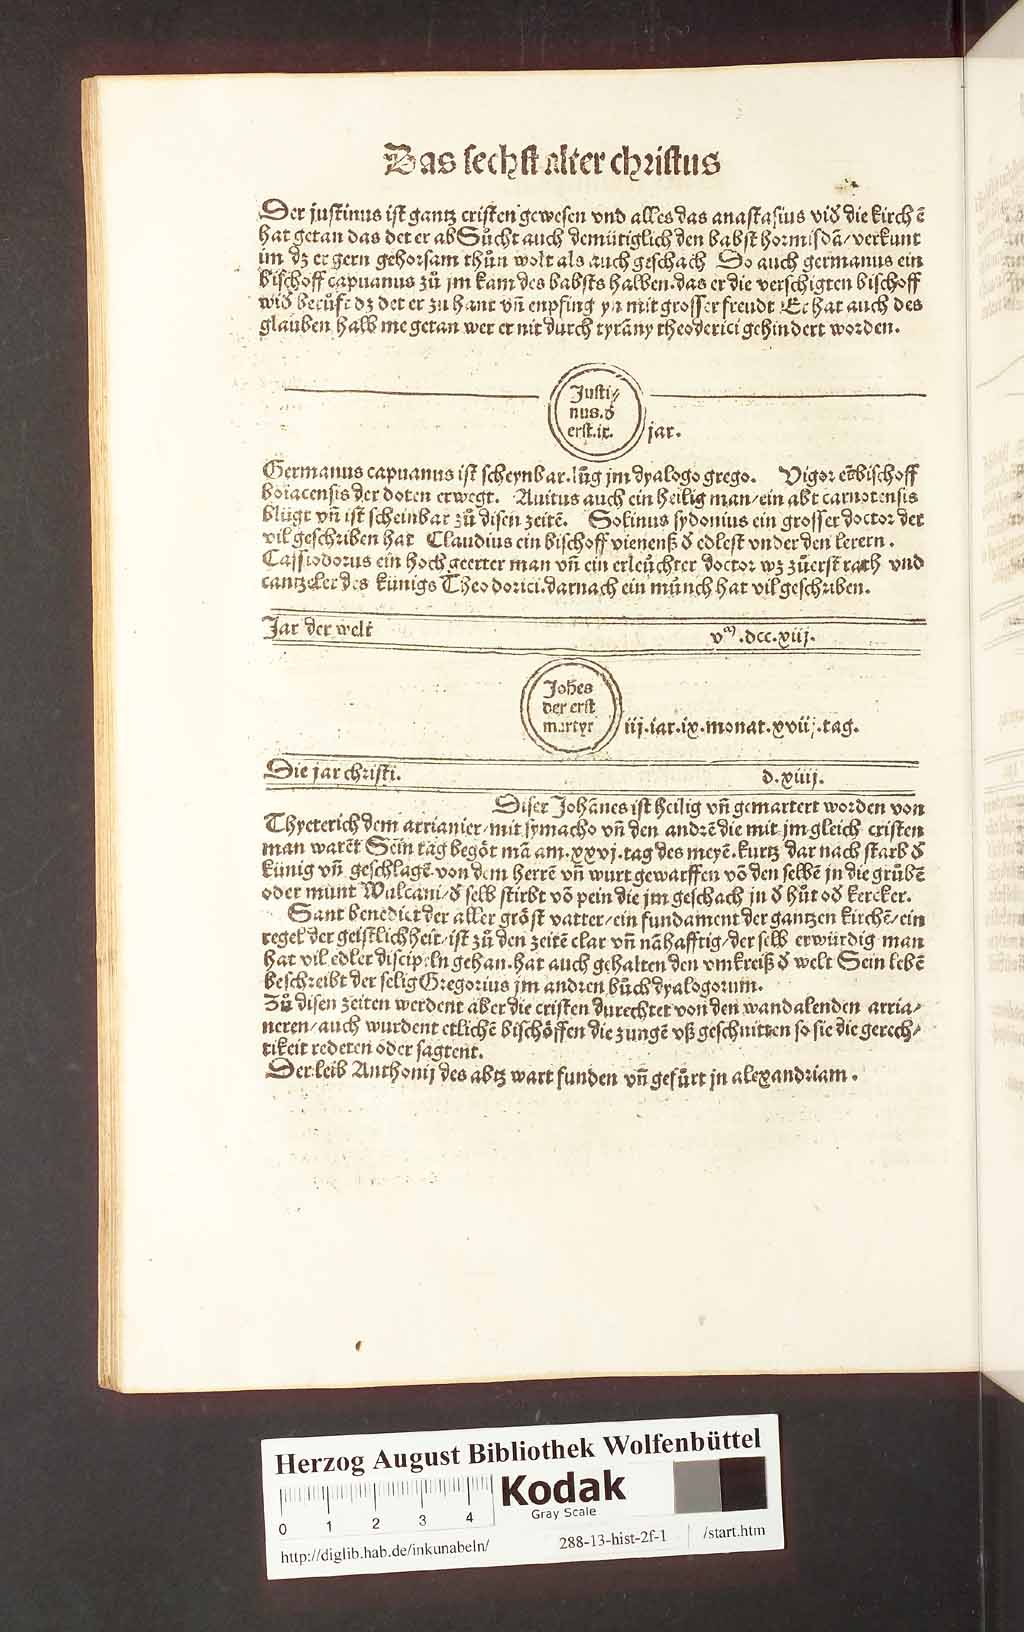 Das sechst alter christus
Der justinus ist gantz cristen gewesen vnd alles das anastasius vid̄ die kirchē
hat getan das det er ab Sůcht auch demütiglich den babst hormisdā/verkunt
im dz er gern gehorsam thůn wolt als auch geschach So auch germanus ein
bischoff capuanus zů jm kam des babsts halben.das er die verschigten bischoff
wid̄ berůfe dz det er zu hant vn̄ enpfing yn mit grosser freudt Er hat auch des
glauben halb me getan wer er nit durch tyrāny theoderici gehindert worden.
Justi/
nus.d̄
erst.ix.
jar.
Germanus capuanus ist scheynbar.lūg jm dyalogo grego. Vigor ertzbischoff
boiacensis der doten erwegt. Auitus auch ein heilig man/ein abt carnotensis
blügt vn̄ ist scheinbar zů disen zeitē. Solinus sydonius ein grosser doctor der
vil geschriben hat Claudius ein bischoff vienenß d̄ edlest vnder den lerern.
Cassiodorus ein hoch geerter man vn̄ ein erleůchter doctor wz zůerst rath vnd
cantzeler des künigs Theodorici.darnach ein münch hat vil geschriben.
Jar der welt vᵐ.dcc.xiij.
Johēs
der erst
martyr
iij.iar.ix.monat.xvij.tag.
Die jar christi. d.xiiij.
Diser Johānes ist heilig vn̄ gemartert worden von
Thyeterich dem arrianier/mit symacho vn̄ den andrē die mit jm gleich cristen
man warēt Sein tag begöt mā am.xxvj.tag des meyē.kurtz dar nach starb d̄
künig vn̄ geschlagē.von dem herrē vn̄ wurt geworffen vō den selbē in die grůbē
oder munt Wulcani/d̄ selb stirbt vō pein die jm geschach jn d̄ hůt od̄ kercker.
Sant benedict der aller gröst vatter/ein fundament der gantzen kirchē/ein
regel der geistlichheit/ist zů den zeitē clar vn̄ nāhafftig/der selb erwürdig man
hat vil edler discipeln gehan.hat auch gehalten den vmkreiß d̄ welt Sein lebē
beschreibt der selig Gregorius jm andren bůch dyalogorum.
Zů disen zeiten werdent aber die cristen durechtet von den wandalenden arria/
neren/auch wurdent etlichē bischöffen die zungē vß geschnitten so sie die gerech/
tikeit redeten oder sagtent.
Der leib Anthonij des abtz wart funden vn̄ gefůrt jn alexandriam.
Herzog August Bibliothek Wolfenbüttel
Kodak
Gray Scale
0 1 2 3 4
http://diglib.hab.de/inkunabeln/ 288-13-hist-2f-1 /start.htm